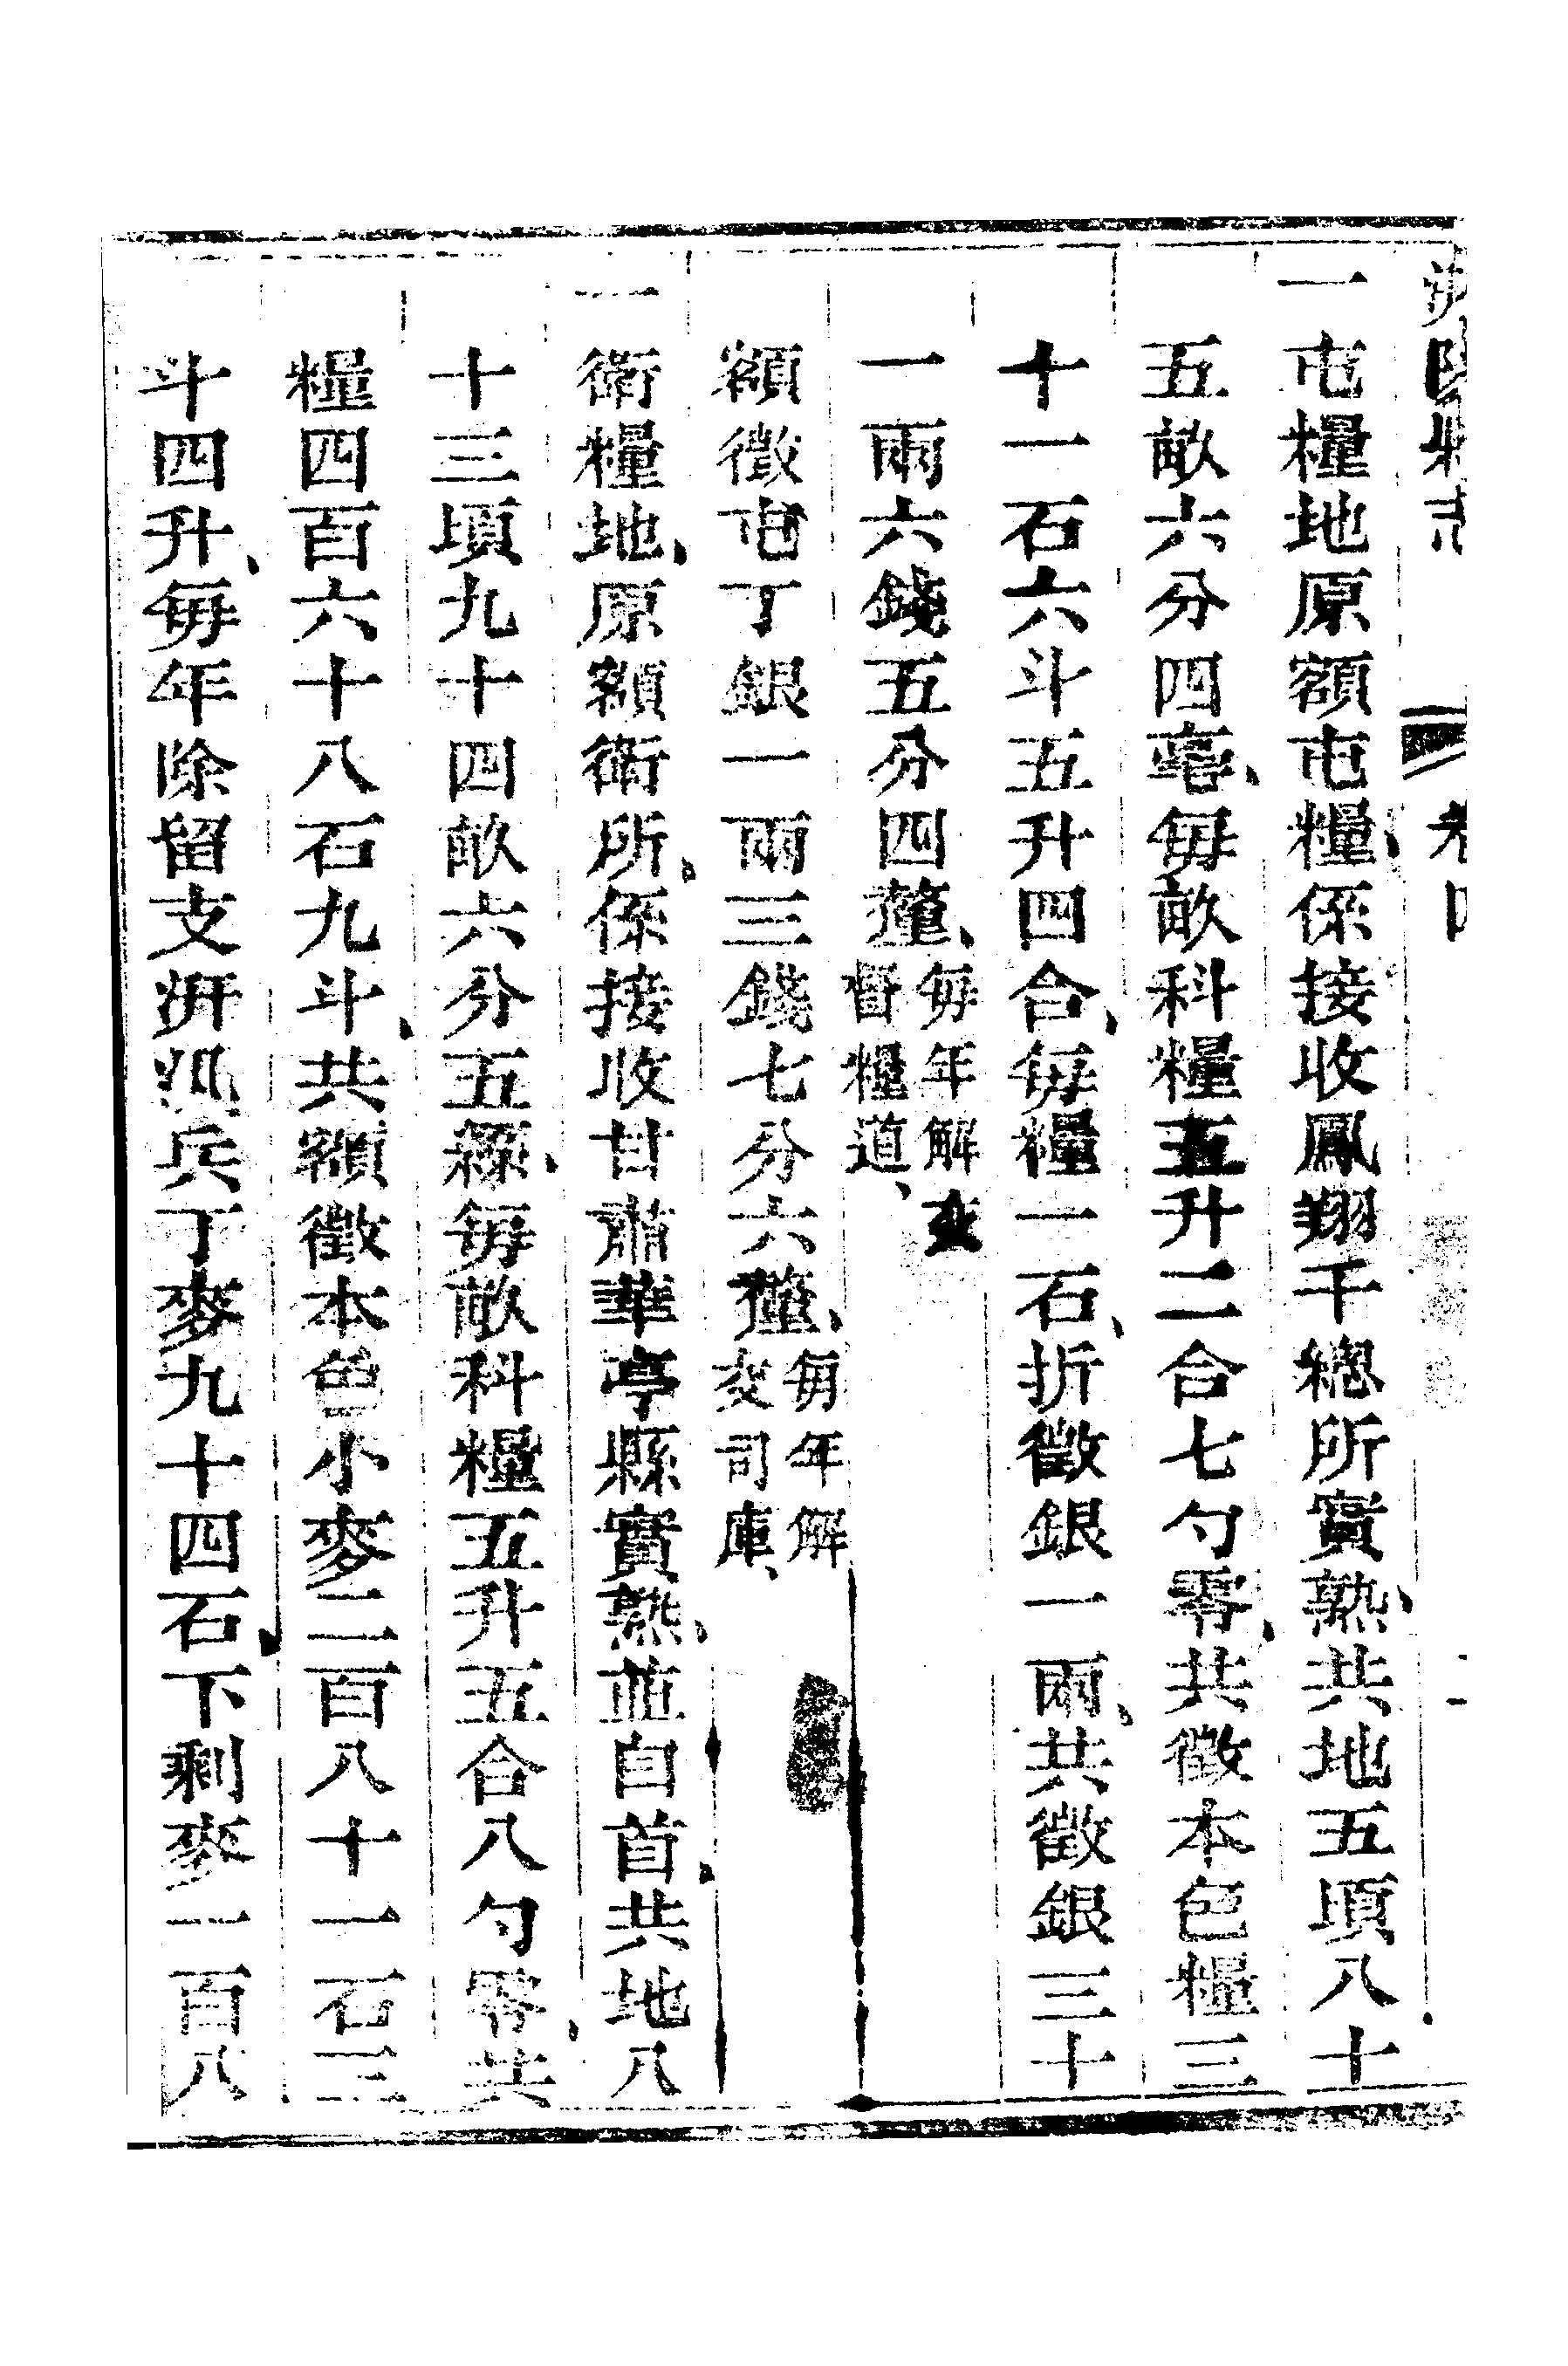 一屯糧地原額屯糧係接收鳳翔千總所實熟共地五頃八十
五畝六分四毫每畝科糧五升二合七勺零共徵本色糧三
十一石六斗五升四合每糧一石折徵銀一兩共徵銀三十
一兩六錢五分四釐每年解交督糧道
額徵屯丁銀一兩三錢七分六釐每年解交司庫
一衛糧地原額衛所係接收甘肅華亭縣實熟並自首共地八
十三頃九十四畝六分五絲每畝科糧五升五合八勺零共
糧四百六十八石九斗共額徵本色小麥二百八十一石三
斗四升每年除留支汧汛兵丁麥九十四石下剩麥一百八